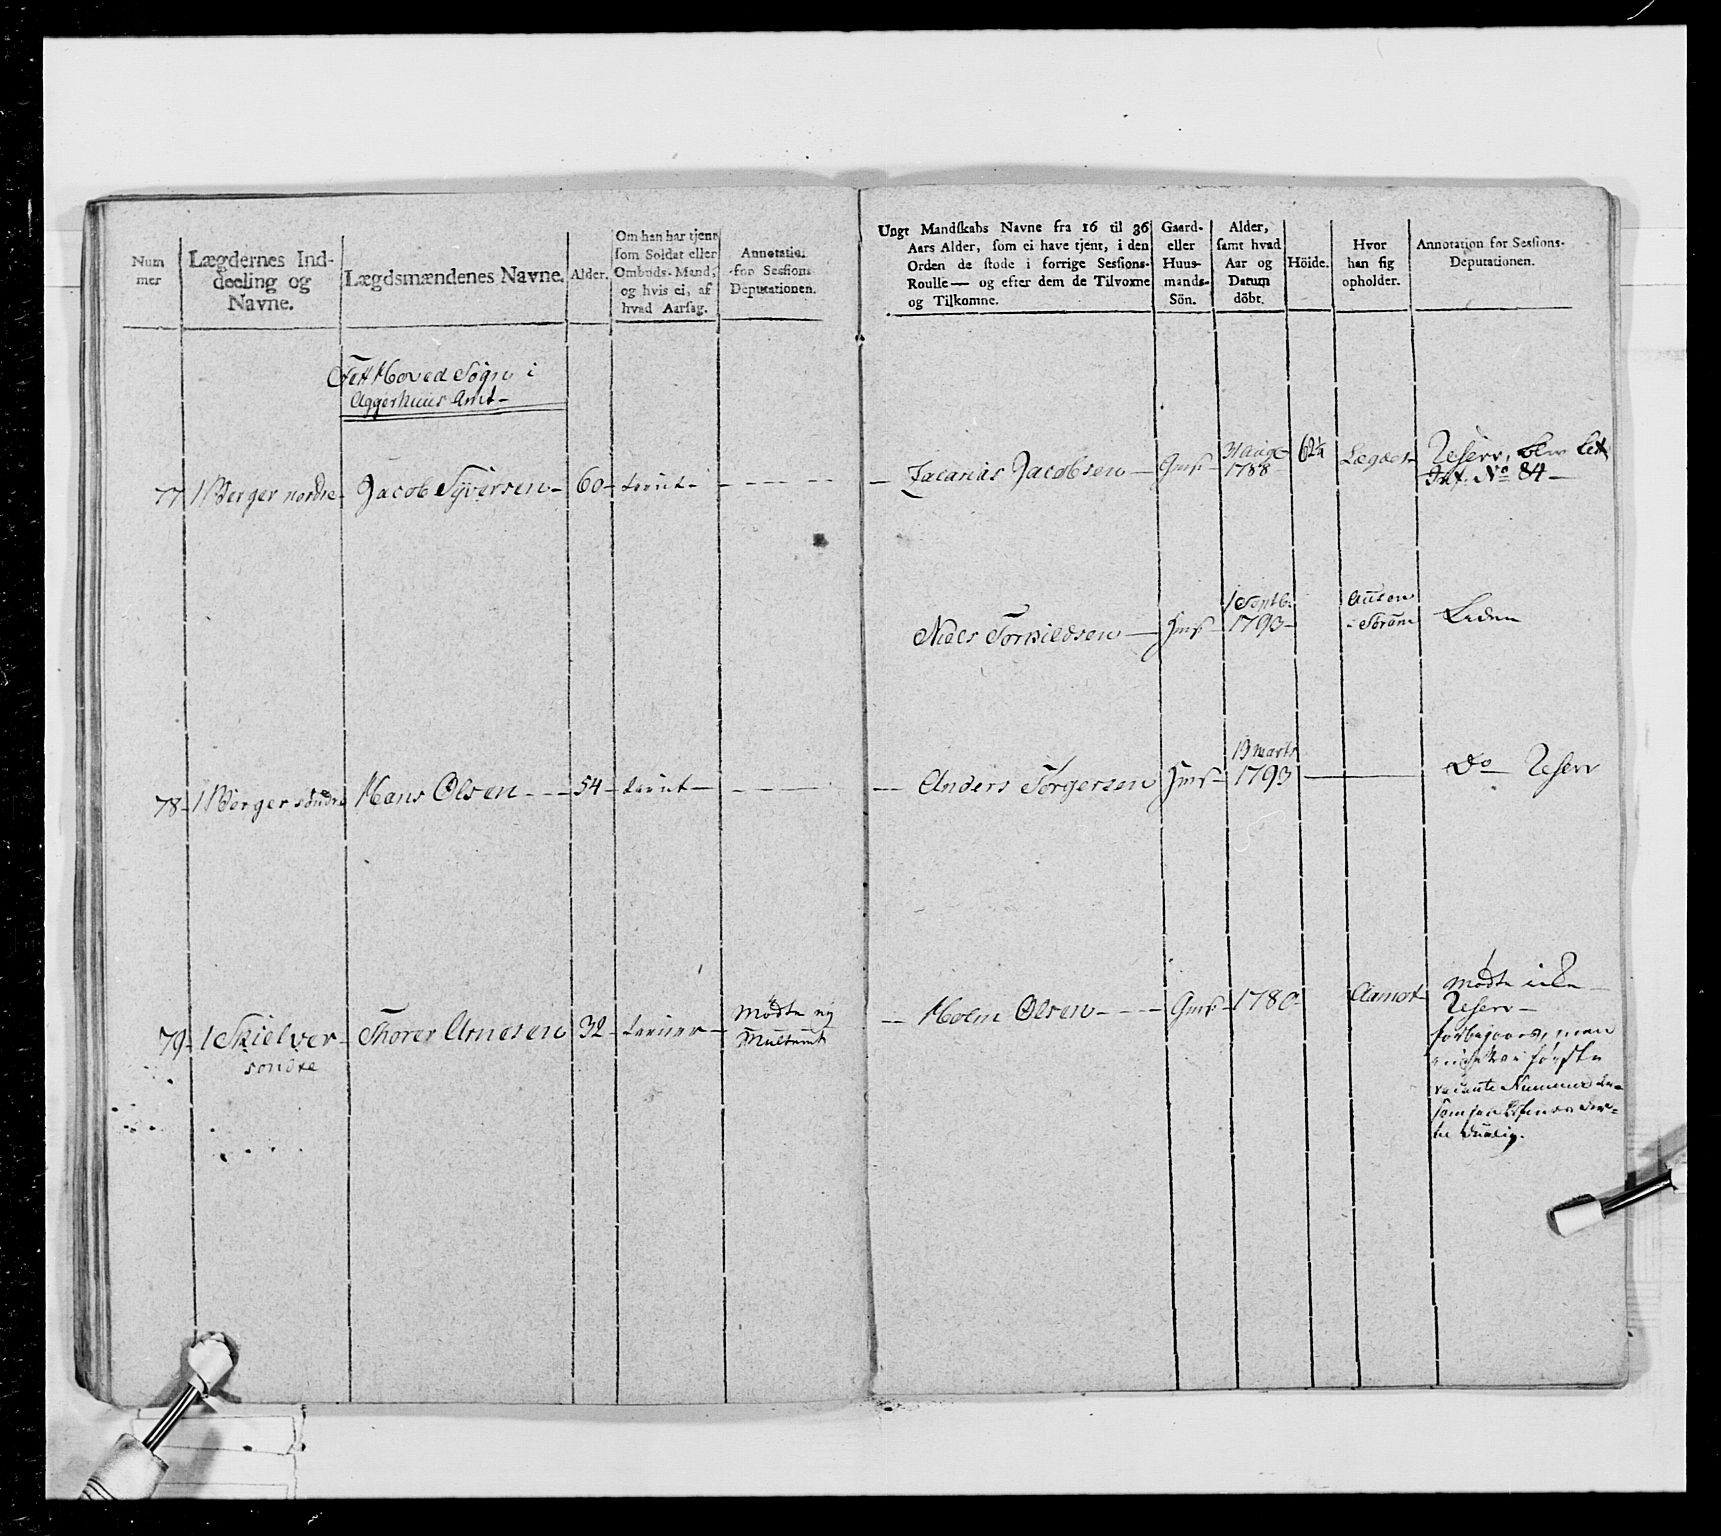 Num
mer
Lægdernes Ind-
deeling og
Navne.
Lægdsmændenes Navne.
Alder.
Om han har tjent
som Soldat eller
Ombuds-Mand,
og hvis ei, af
hvad Aarsag.
Annotation
for Sessions
Deputationen.
Ungt Mandskabs Navne fra 16 til 36
Aars Alder, som ei have tjent, i den
Orden de stode i forrige Sessions-
Roulle — og efter dem de Tilvoxne
og Tilkomne.
Gaard-
eller
Huus-
mands-
Sön.
Alder,
samt hvad
Aar og
Datum
döbt.
Höide.
Hvor
han sig
opholder.
Annotation for Sessions-
Deputationen.
Fett Hoved Sogn i
Aggerhuus Amt-
77 1 Berger nordre- Jacob Syversen- 60- tarvet - - - - - -
— Zacarias Jacobsen — Gms- 31 Aug
1788 - 62¼ Lægdet Reserv,
Inf. No 84 —
Niels Torkildsen — Hms- 1 Septb.
1793-
- Sörum Leden
78- 1 Berger söndre Hans Olsen - - - 54- tarvet — - - - —
— Anders Torgersen Hms- 13 Marts
1793 — Do Reserv
79- 1 Skielver-
söndre
Thorer Arnesen 32- Mödte ej
Multeret
— Holm Olsen - - - - Gms- 1780- Aamot Mödte icke —
Reserv —
forbigaaes, men
förste
vacante Nummer